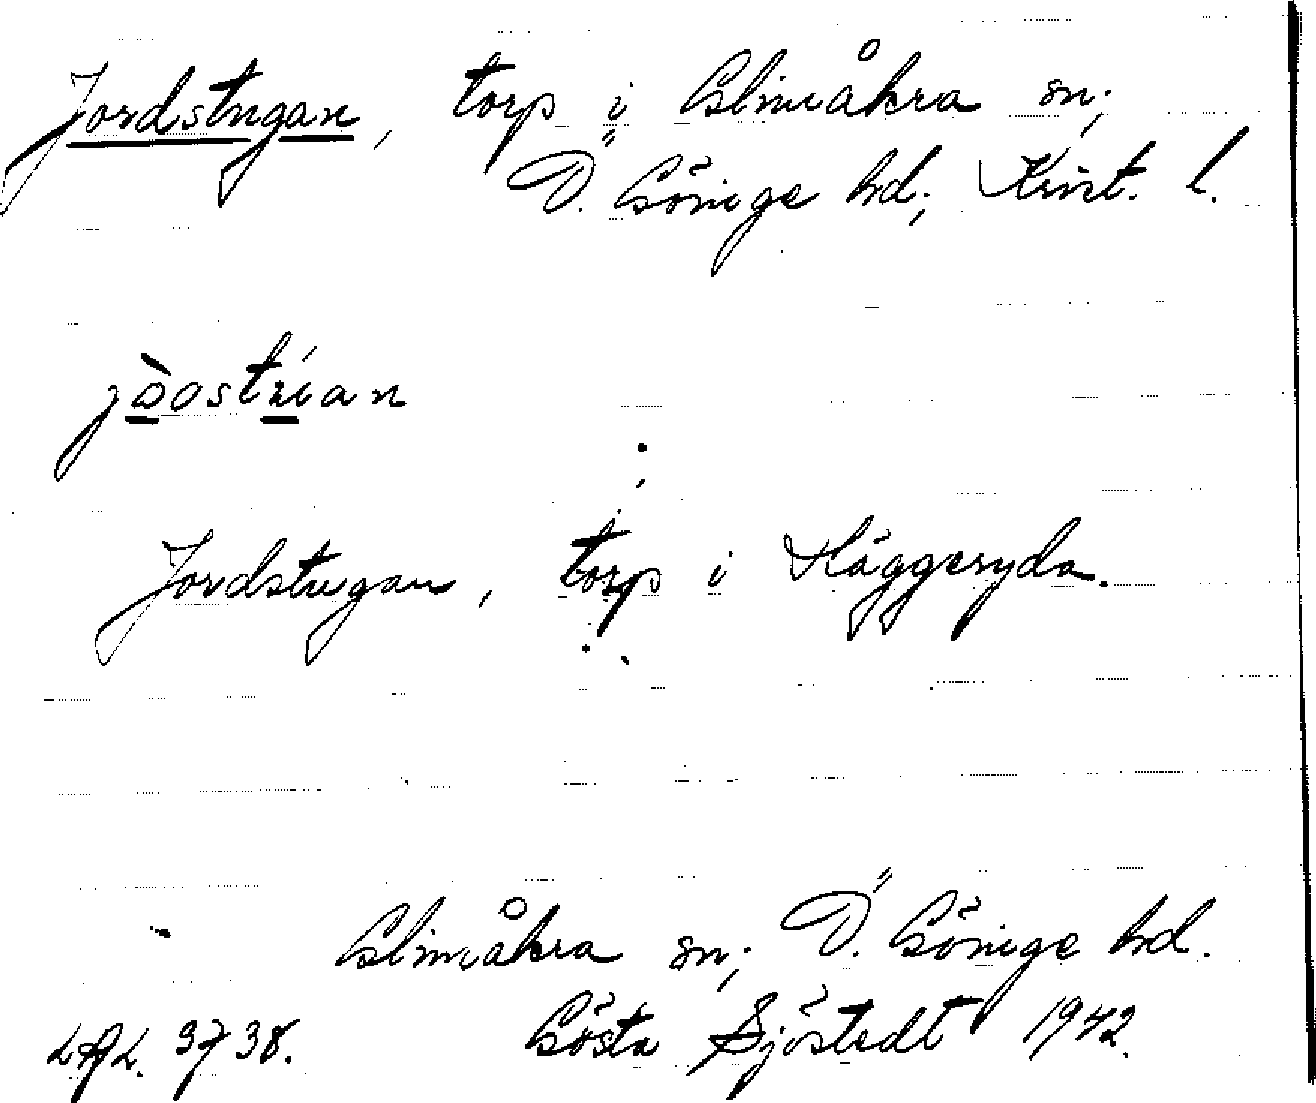 Jordstugan, torp i Glimåkra sn;
Ö. Göinge hd; Krist. l.
Jordstugan, torp i Häggeryda.
Glimåkra sn; Ö. Göinge hd.
LAL. 3738. Gösta Sjöstedt 1942.